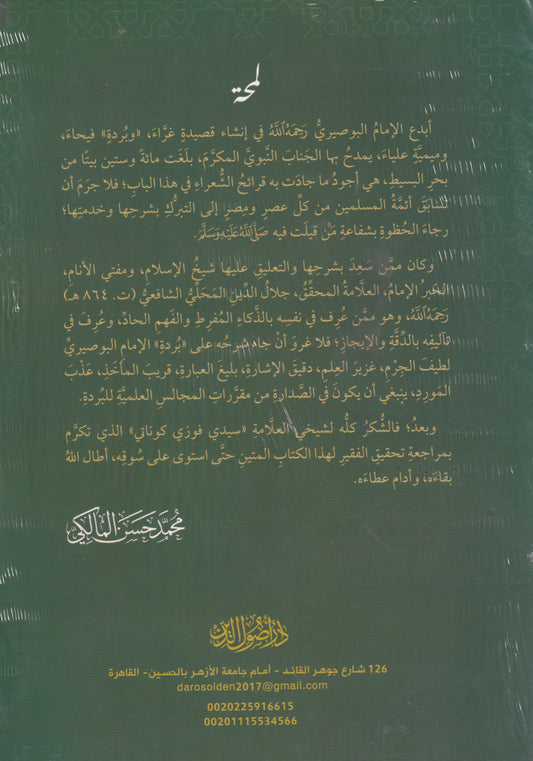 لمحة
أبدع الإمامُ البوصيريُّ رَحِمَهُ ٱللَّهُ في إنشاء قصيدةٍ غرَّاءَ، «وبُردةٍ» فيحاءَ،
وميميَّةٍ علياءَ، يمدحُ بها الجَنابَ النَّبويَّ المكرَّمَ، بلَغَت مائةً وستين بيتًا من
بحرِ البسيطِ، هي أجودُ ما جادَت به قرائحُ الشُّعراءِ في هذا البابِ؛ فلا جرَمَ أن
تسابَقَ أئمَّةُ المسلمين من كلِّ عصرٍ ومِصرٍ إلى التبرُّكِ بشرحِها وخدمتِها؛
رجاءَ الحُظوةِ بشفاعةِ مَن قيلَت فيه صَلَّى ٱللَّهُ عَلَيْهِ وَسَلَّمَ.
وكان ممَّن سَعِدَ بشرحِها والتعليقِ عليها شيخُ الإسلامِ، ومفتي الأنامِ،
الحَبرُ الإمامُ، العلَّامةُ المحقِّقُ، جلالُ الدِّينِ المَحَلِّيُّ الشافعيُّ (ت. ٨٦٤ هـ)
رَحِمَهُ ٱللَّهُ، وهو ممَّن عُرِف في نفسِه بالذَّكاء المُفرِط والفَهم الحادِّ، وعُرِف في
تآليفِه بالدِّقَّةِ والإيجازِ؛ فلا غروَ أنْ جاء شرحُه على «بُردةِ» الإمامِ البوصيريِّ
لطيفَ الجِرْمِ، غزيرَ العِلمِ، دقيقَ الإشارةِ، بليغَ العبارةِ، قريبَ المأخَذِ، عَذْبَ
المَورِدِ، ينبغي أن يكونَ في الصَّدارةِ من مقرَّراتِ المجالسِ العلميَّةِ للبُردةِ.
وبعدُ؛ فالشُّكرُ كلُّه لشيخي العلَّامةِ «سيدي فوزي كوناتي» الذي تكرَّم
بمراجعةِ تحقيقِ الفقيرِ لهذا الكتابِ المتينِ حتَّى استوى على سُوقِه، أطال اللهُ
بقاءَه، وأدام عطاءَه.
محمد حسن المالكي
دار أصول الدين
126 شارع جوهر القائد - أمام جامعة الأزهر بالحسين- القاهرة
darosolden2017@gmail.com
0020225916615
00201115534566